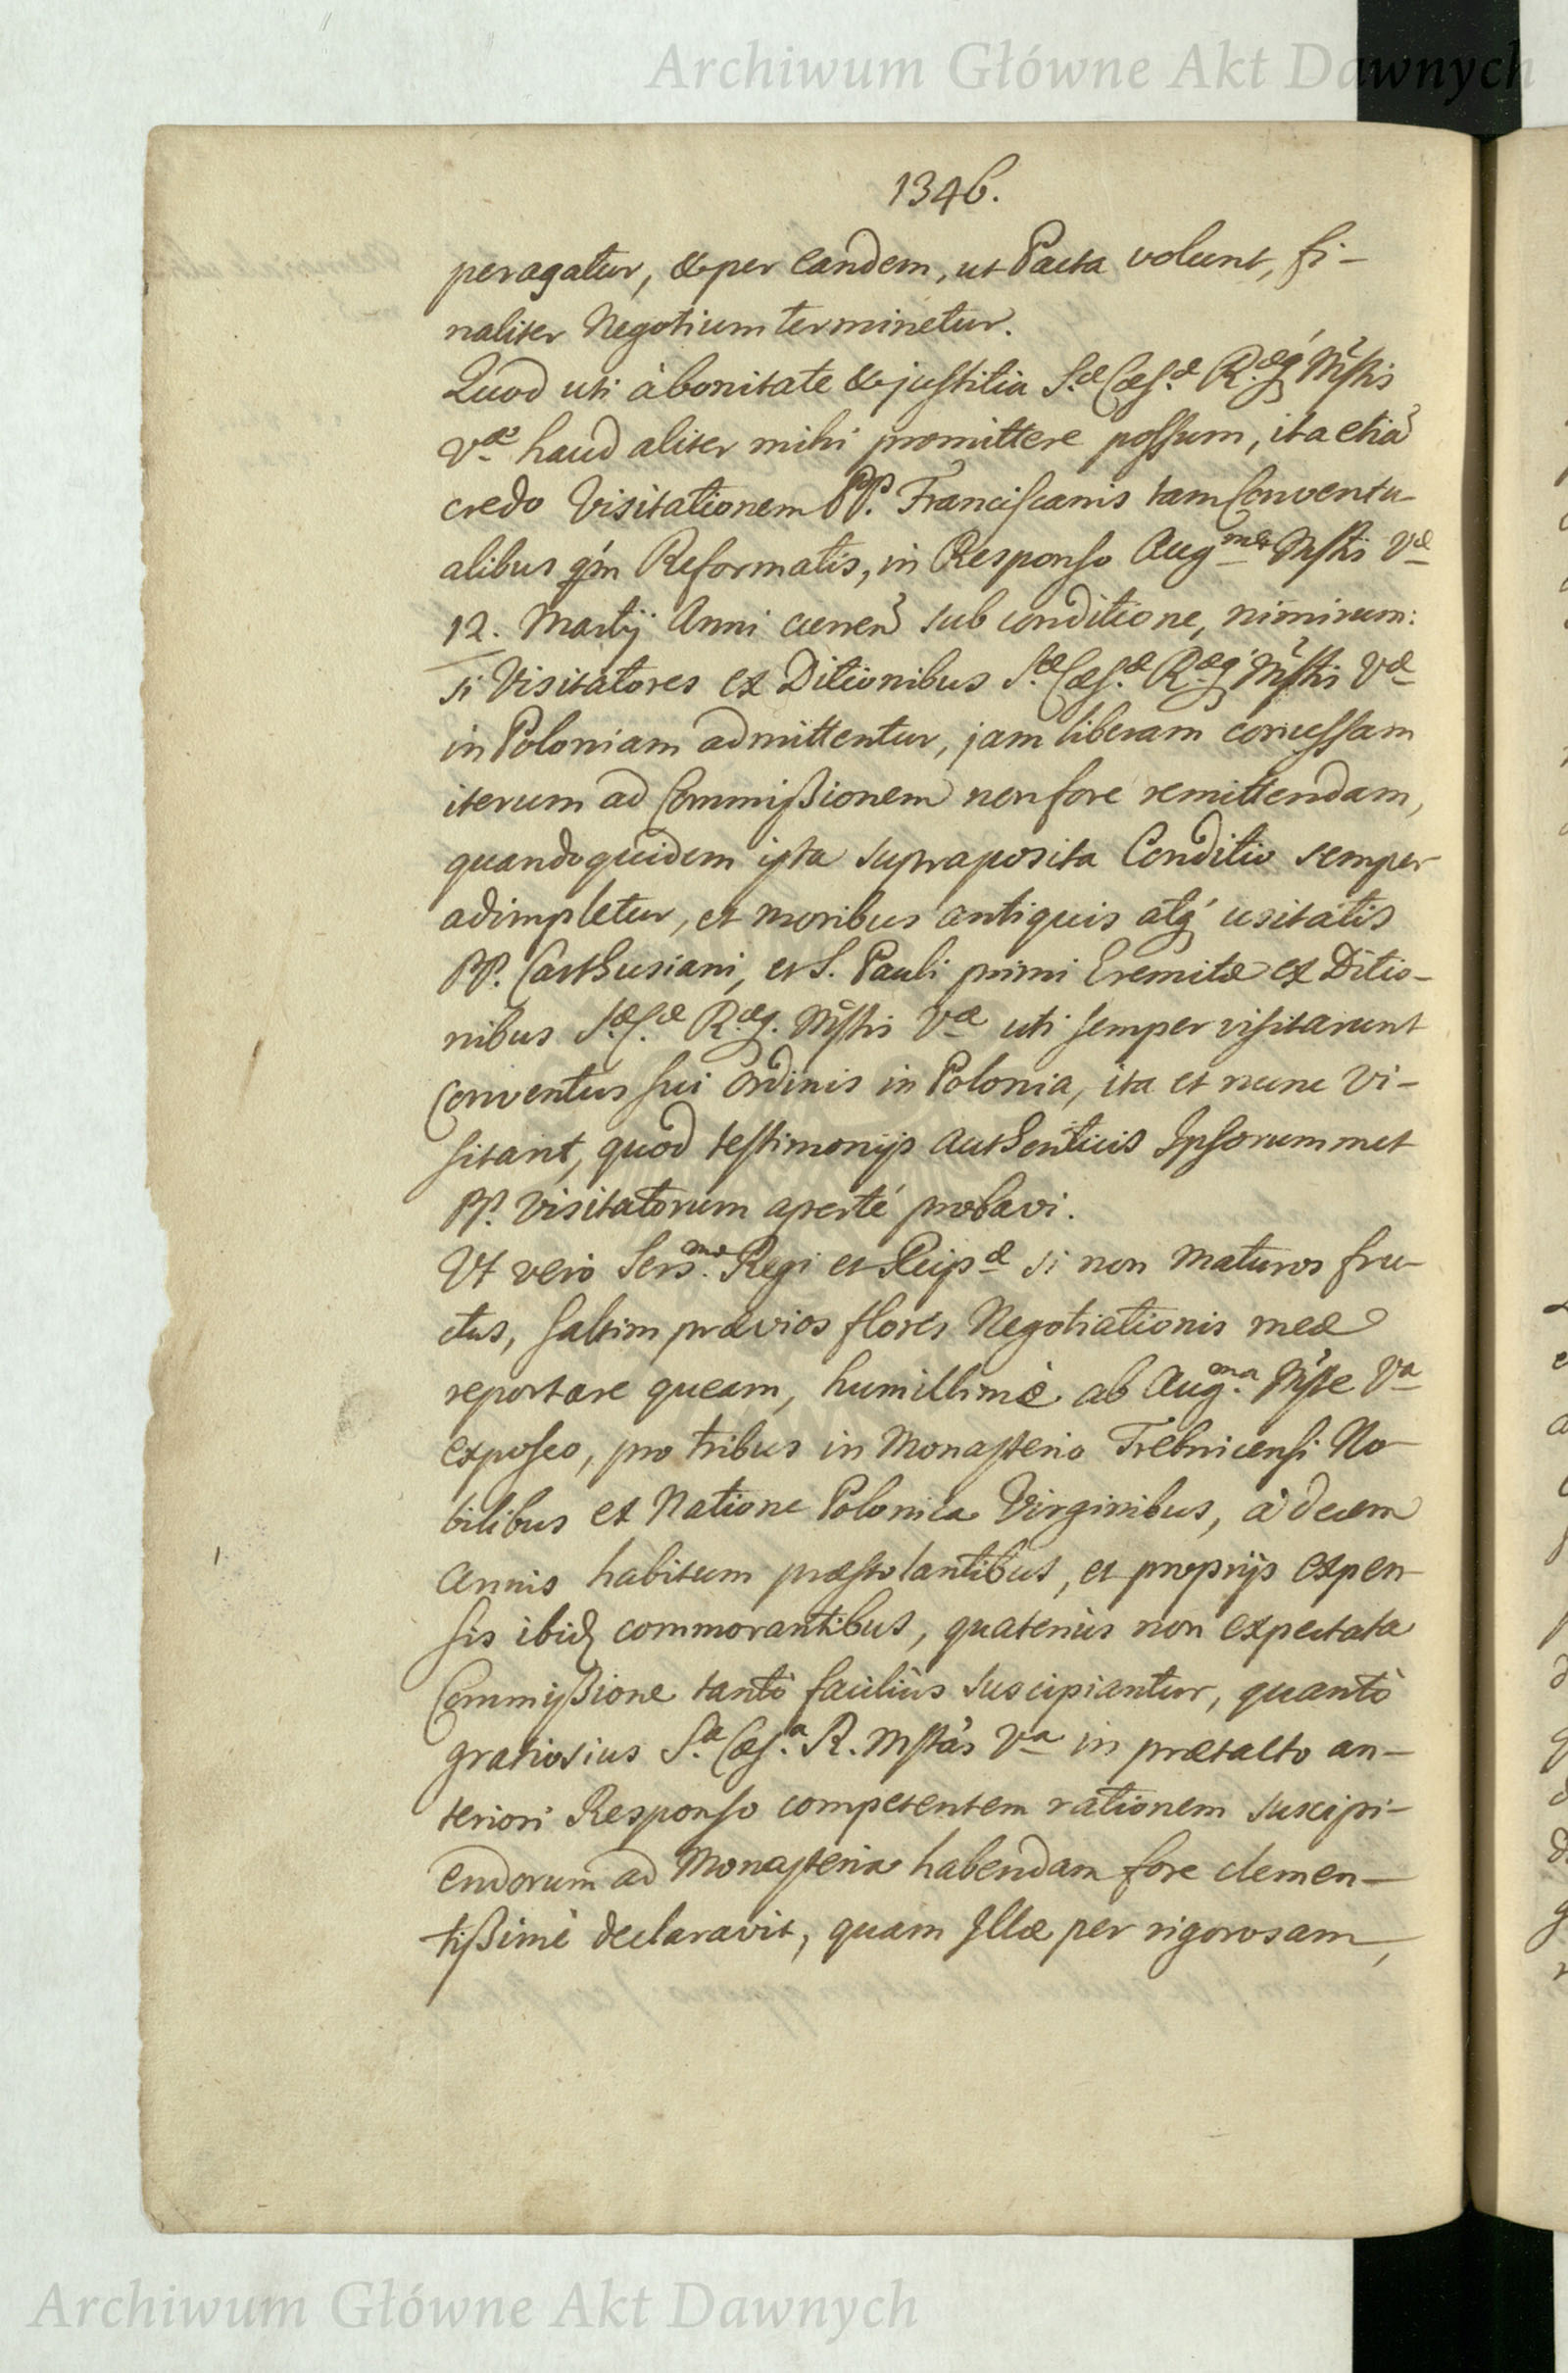 Archiwum Główne Akt Dawnych
1346.
peragatur, & per eandem, ut Pacta volunt, fi-
naliter Negotium terminetur.
Quod uti à bonitate & justitia S.æ Cæs.æ R.æq́ Mṡtis
Væ haud aliter mihi promittere possum, ita etia᷃
credo Visitationem PP. Franciscanis tam Conventu-
alibus qm̃ Reformatis, in Responso Augmæ Mṡtis Væ
12. Martij Anni curren᷃ sub conditione, nimirum:
si Visitatores ex Ditionibus S.æ Cæs.æ R.æq́ Mṡtis Væ
in Poloniam admittentur, jam liberam concessam
iterum ad Commißionem non fore remittendam,
quandoquidem ista supraposita Conditio semper
adimpletur, et moribus antiquis atq́ usitatis
PP. Carthusiani, et S. Pauli primi Eremitæ ex Ditio-
nibus S.æ C.æ R.æq. Mṡtis Væ uti semper visitarunt
Conventus sui Ordinis in Polonia, ita et nunc Vi-
sitant, quod testimonijs authenticis Ipsorummet
PP. Visitatorum aperté probavi.
Ut verò Sers.mo Regi et Reip.æ si non maturos fru-
ctus, saltim prævios flores Negotiationis meæ
reportare queam, humillimè ab Aug.ma Mṡte Va
exposco, pro tribus in Monasterio Trebnicensi No-
bilibus et Natione Polonica Virginibus, à decem
annis habitum præstolantibus, et proprijs expen-
sis ibid commorantibus, quatenùs non expectata
Commißione tantò faciliùs suscipiantur, quantò
gratiosius S.a Cæs.a R. Mstàs Va in prætacto an-
teriori Responso competentem rationem suscipi-
endorum ad Monasteria habendam fore clemen-
tißimè declaravit, quam Illæ per rigorosam,
Archiwum Główne Akt Dawnych